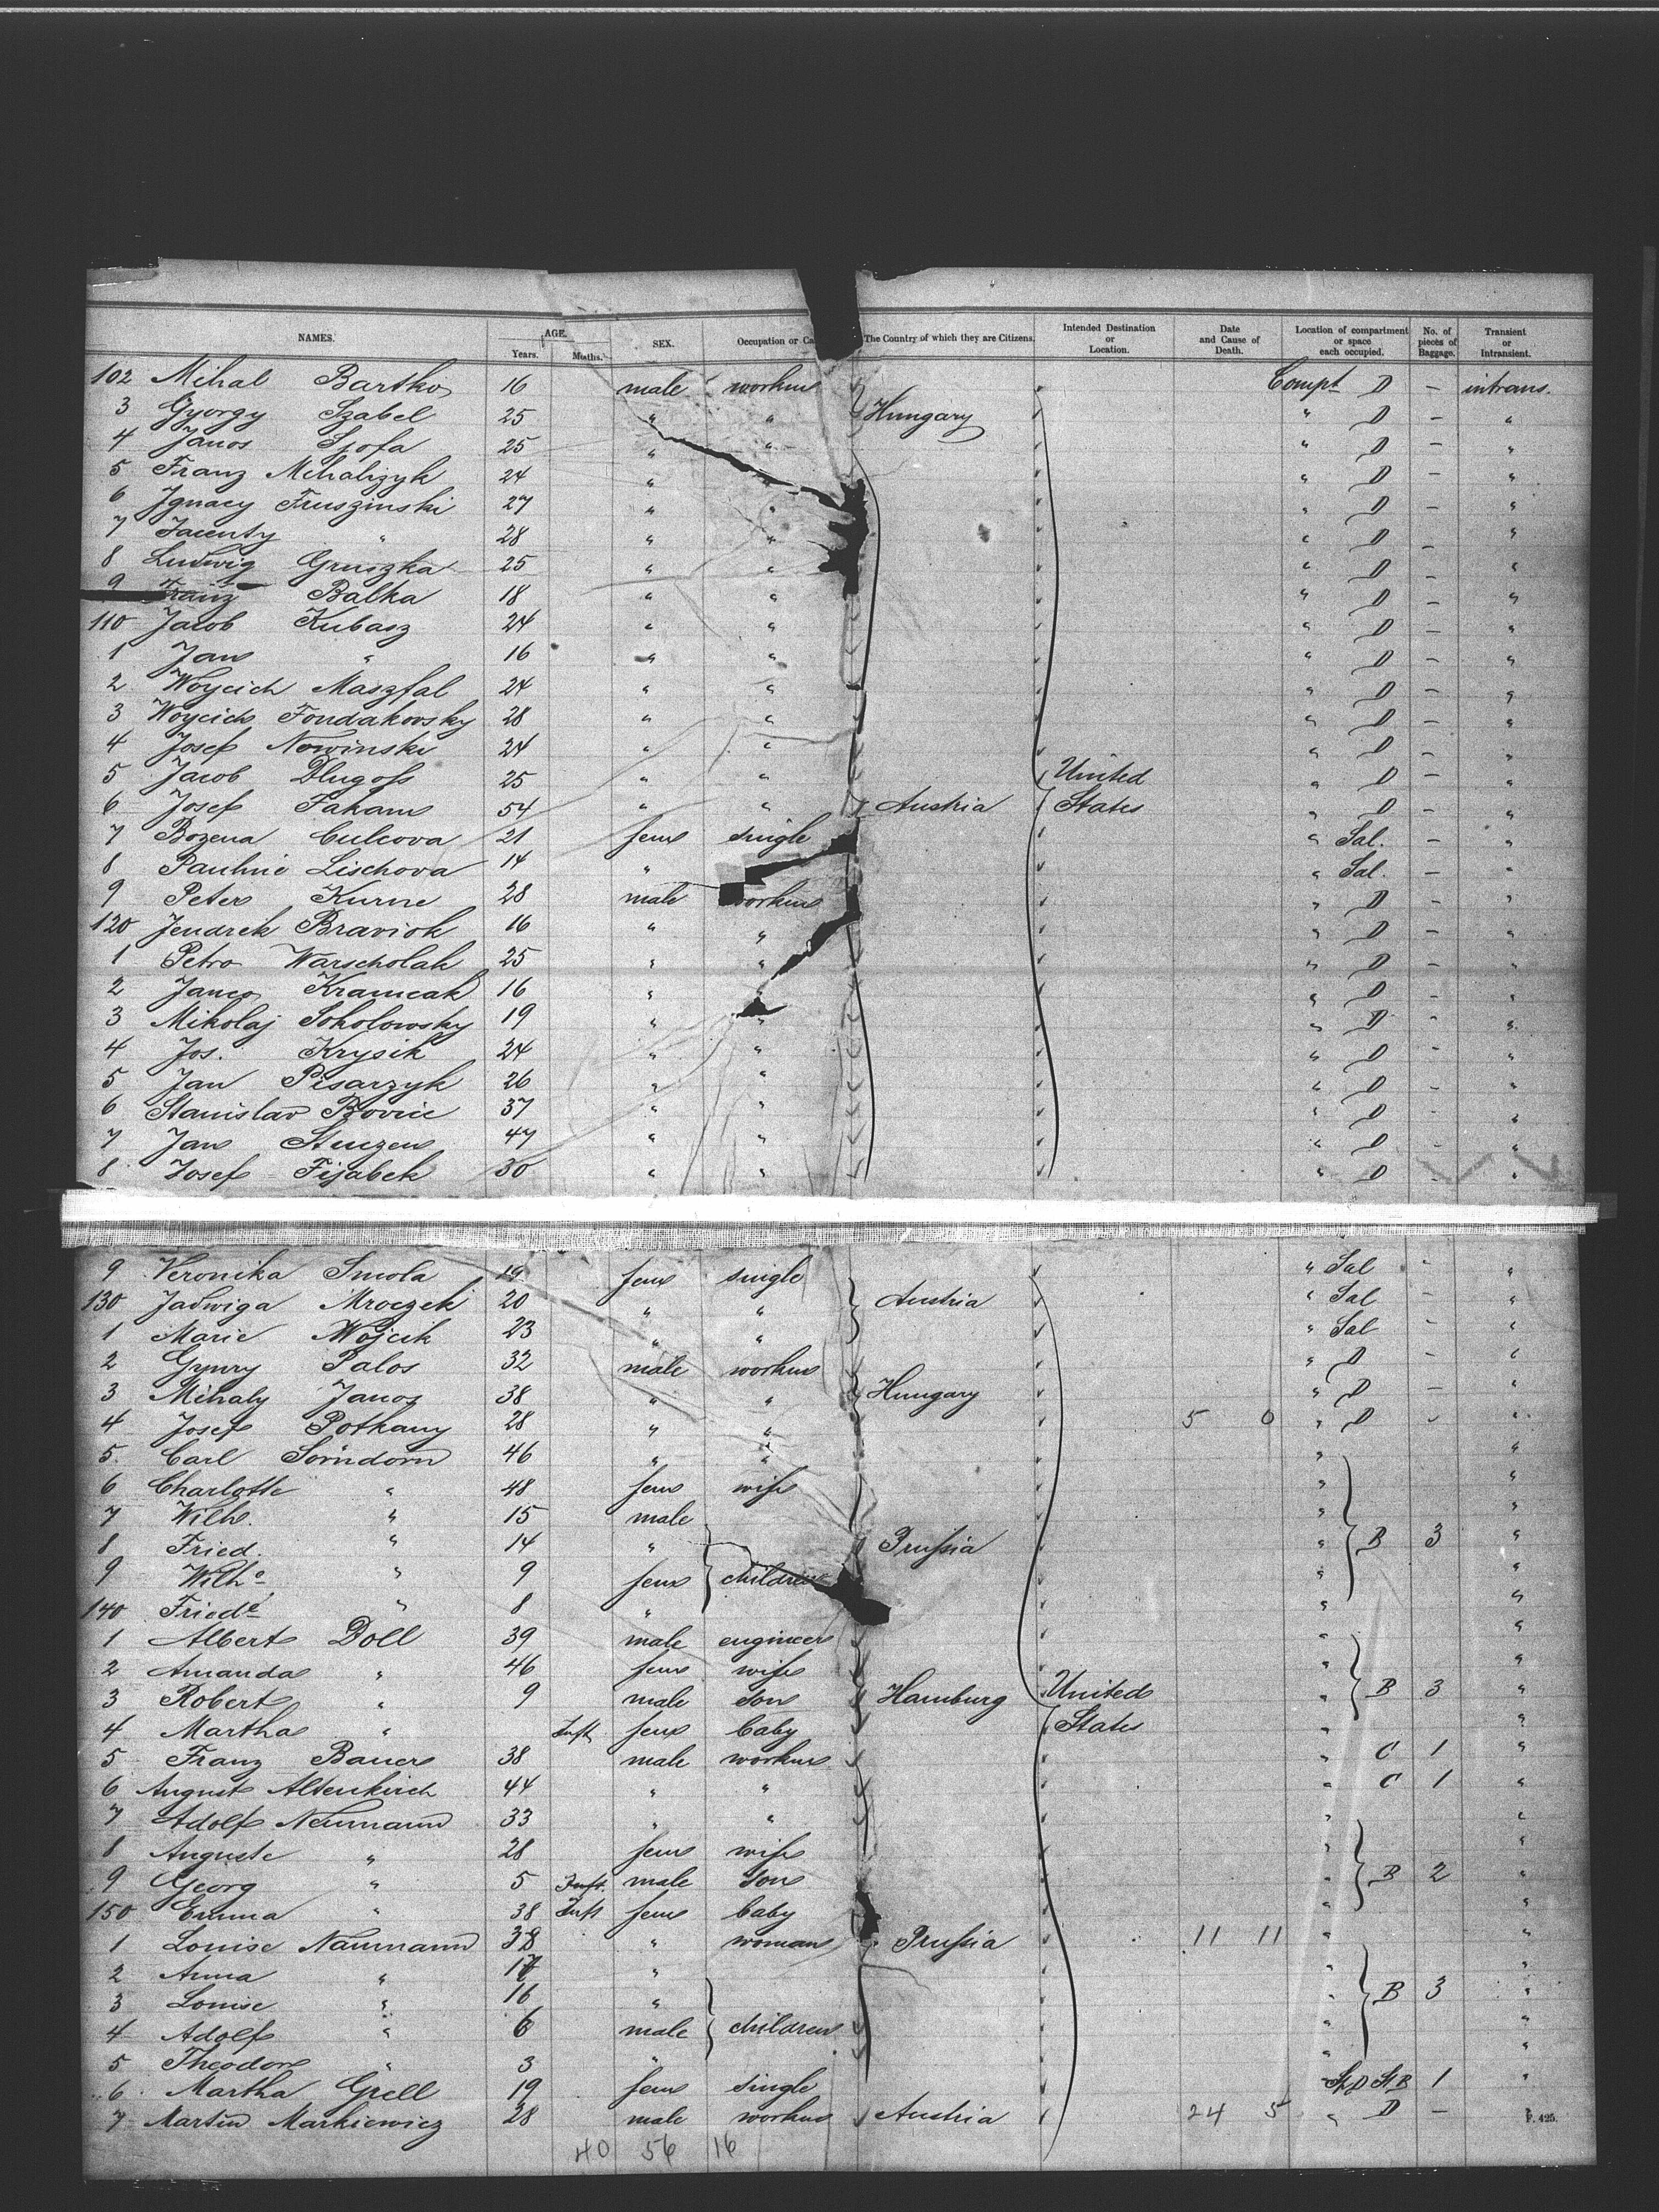 NAMES. AGE. Years. Mnths. SEX. Occupation or Ca The Country of which they are Citizens. Intended Destination or Location. Date and Cause of Death. Location of compartment or space each occupied. No. of pieces of Baggage. Transient or Intransient.
102 Mihal Bartko 16 male workm Compt D – intrans.
3 Gyorgy Szabel 25 " " Hungary " D – "
4 Janos 25 " " " D – "
5 Franz Mihalizyk 24 " " D – "
6 Ignacy Fruszinski 27 " " " D – "
7 Jacenty " 28 " " " D – "
8 Ludwig Gruszka 25 " " " D – "
9 Franz Balka 18 " " " D – "
110 Jacob Kubasz 24 " " " D – "
1 Jan " 16 " " " D – "
2 Woycich Maszfal 24 " " " D – "
3 Woycich Fondakovsky 28 " " " D – "
4 Josef Nowinski 24 " " " D – "
5 Jacob Dlugoss 25 " " United " D – "
6 Josef Faham 54 " " Austria States " D – "
7 Bozena Culcova 21 fem single " Sal. – "
8 Pauline Lischova 14 " " Sal. – "
9 Peter Kurne 28 male workm " D – "
120 Jendrek Braviok 16 " " " D – "
1 Petro Warscholak 25 " " " D – "
2 Janco Kramcak 16 " " " D – "
3 Mikolaj Sokolowsky 19 " " " D " "
4 Jos. Krysik 24 " " " D " "
5 Jan Pisarzyk 26 " " " D " "
6 Stanislav Rovice 37 " " " D " "
7 Jan Stenzen 47 " " " D – "
8 Josef Fijabek 30 " " " D – "
9 Veronika Smola 19 fem single " Sal " "
130 Jadwiga Mroczek 20 " " Austria " Sal – "
1 Marie Wojcik 23 " " " Sal " "
2 Palos 32 male workm " D – "
3 Mihaly Janos 38 " " Hungary " D – "
4 Josef Pothany 28 " " 5 0 " D " "
5. Carl Sörndorn 46 " " " "
6 Charlotte " 48 fem wife " "
7 Wilh. " 15 male " "
8 Fried. " 14 " Prussia " B 3 "
9 Wilhe " 9 fem children " "
140 Friede " 8 " " "
1 Albert Doll 39 male engineer " "
2 Amanda " 46 fem wife " "
3 Robert " 9 male son Hamburg United " B 3 "
4 Martha " Inft fem baby States "
5 Franz Bauer 38 male workm " C 1 "
6 August Altenkirch 44 " " " C 1 "
7 Adolf Neumann 33 " " " "
8 Auguste " 28 fem wife " "
9 Georg " 5 Inft. male son " B 2 "
150 Emma " 38 Inft fem baby " "
1 Louise Naumann 38 " woman Prussia 11 11 " "
2 Anna " 17 " " "
3 Louise " 16 " " B 3 "
4 Adolf " 6 male children " "
5 Theodor " 3 " " "
6 Martha Grell 19 fem single St B 1 "
7 Martin Markiewicz 28 male workm Austria 24 5 " D –
F. 425.
40 56 16